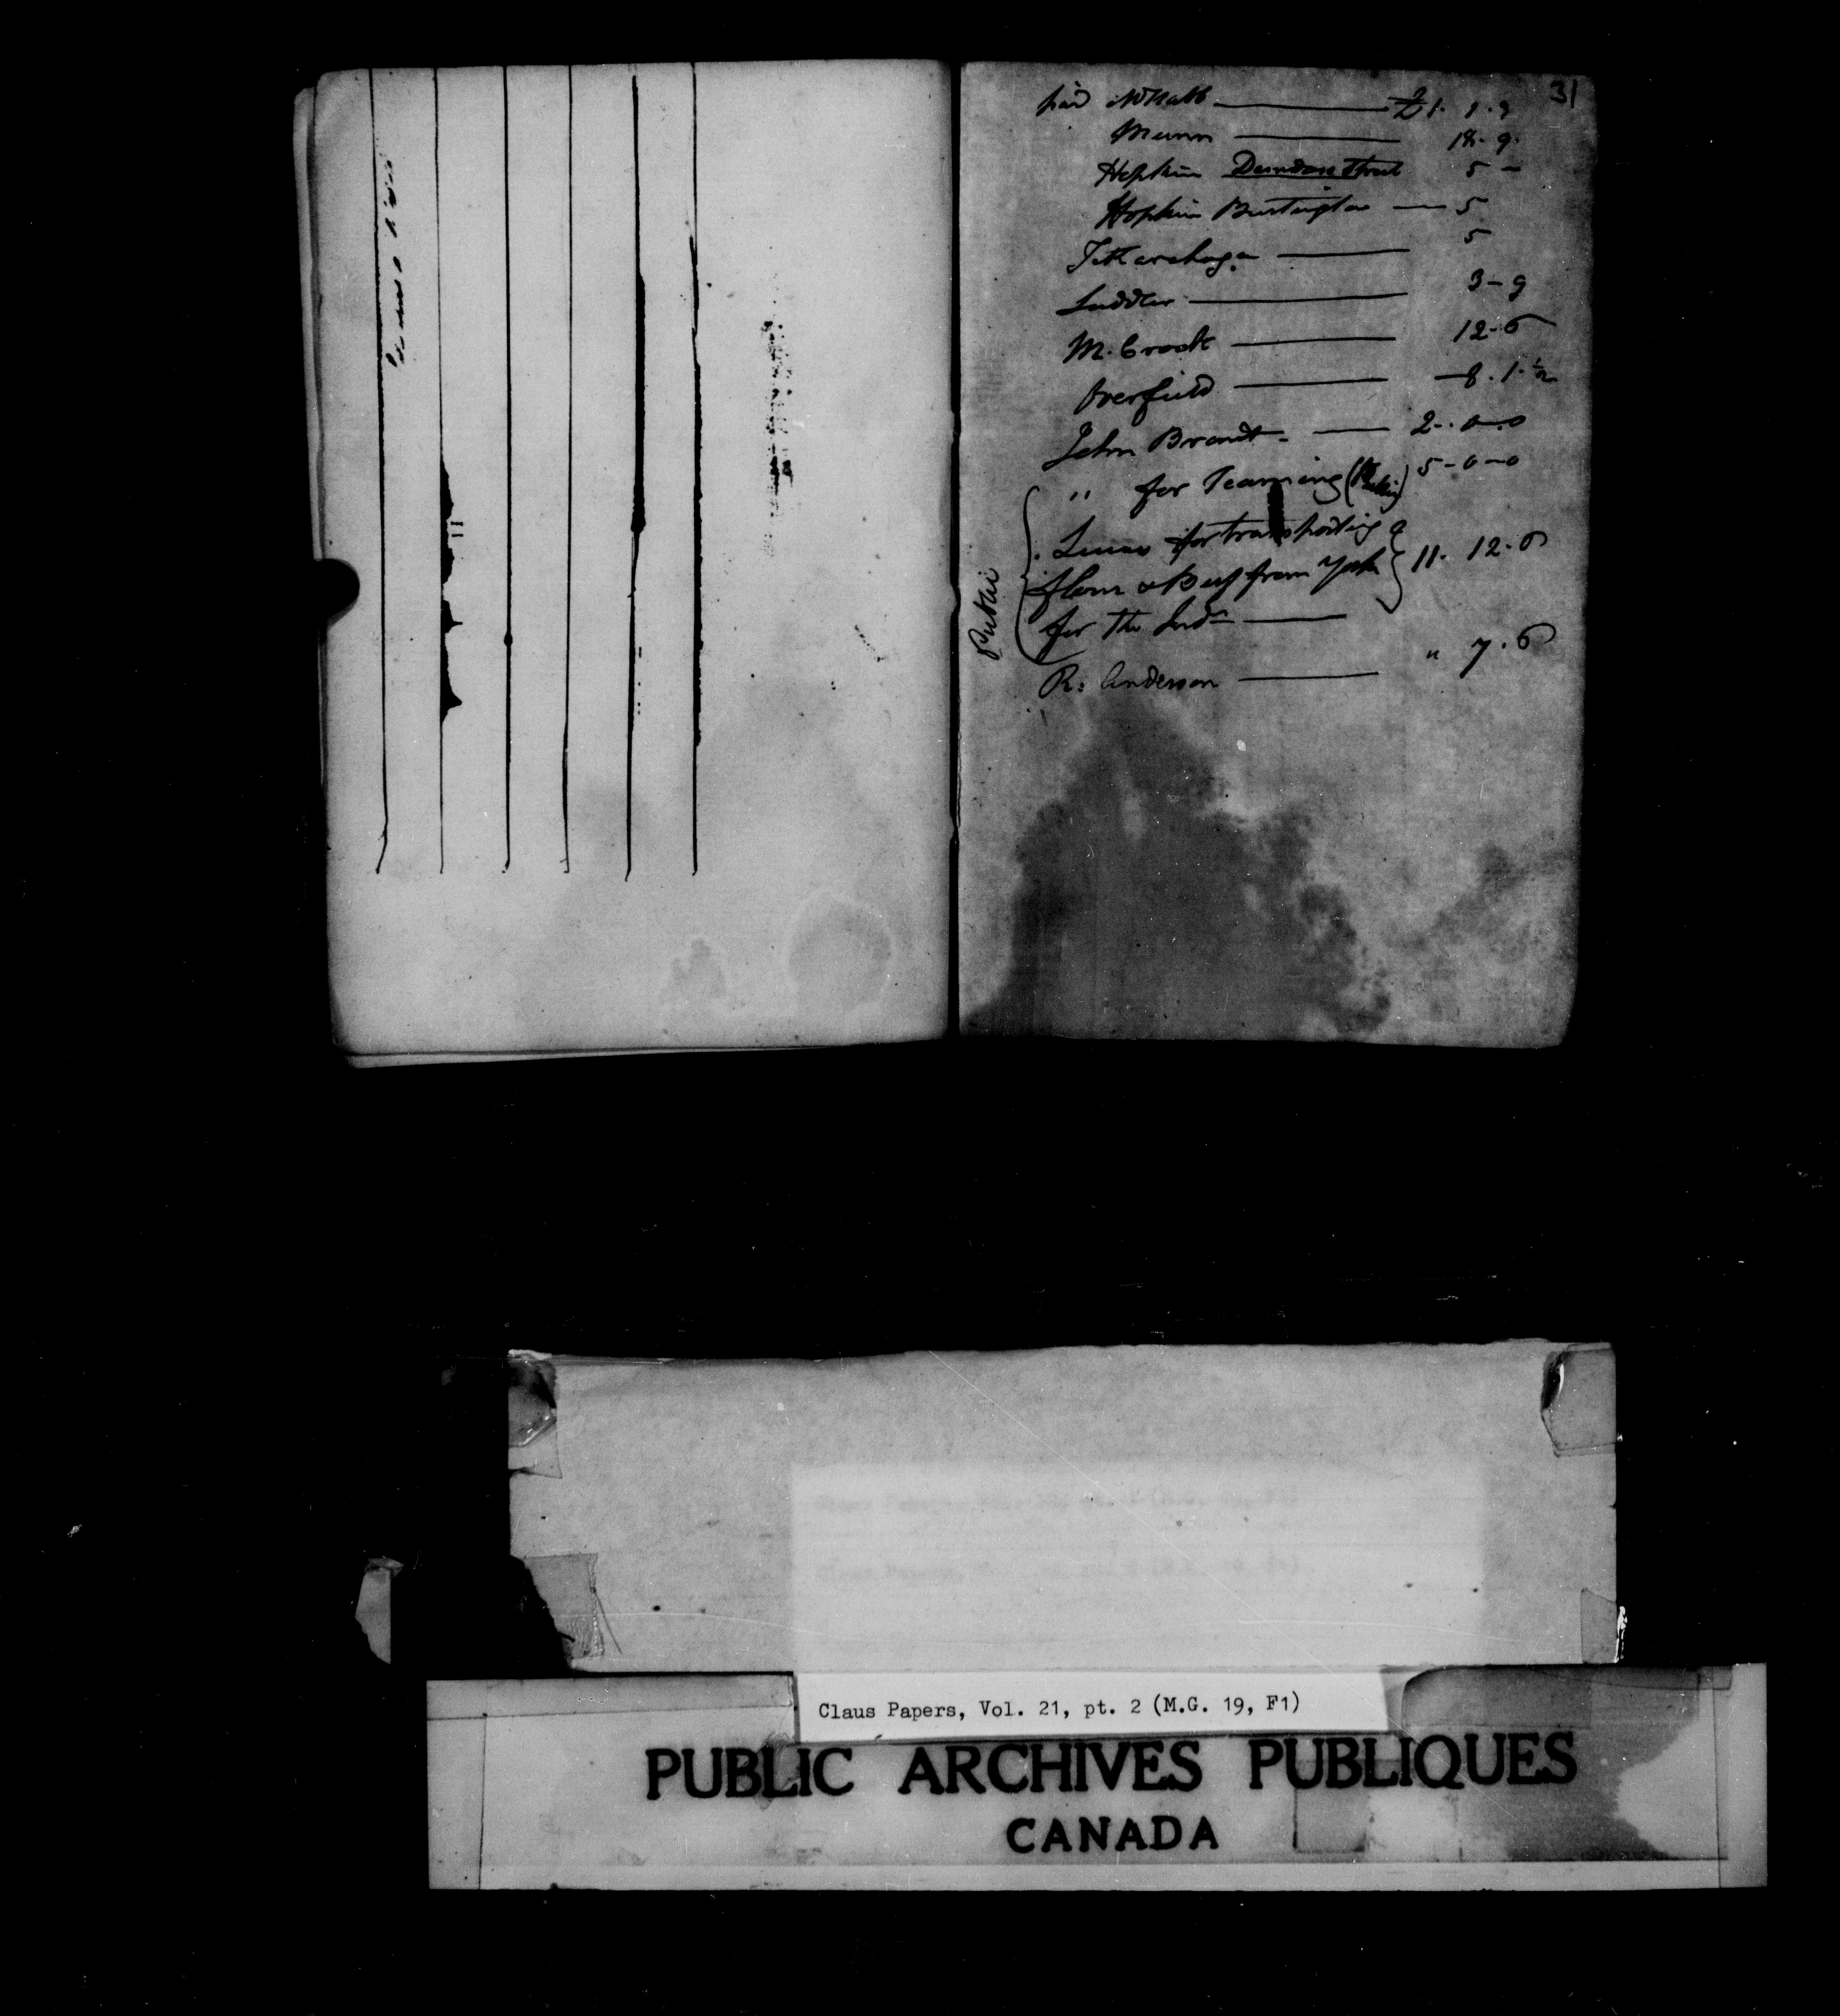 31
paid McNabb £1. 1. 9
Munn 18. 9.
Hopkin Dundas Street 5 -
Hopkin Burlington 5
5
Saddler 3 - 9
M. Crook 12. 6
Overfield 8. 1. ½
John Brant 2. 0. 0
" for Teaming (Public) 5 - 0 - 0
for transporting
flour & Beef from York 11. 12. 6
for the Inds
Public
R. Anderson " 7. 6
Claus Papers, Vol. 21, pt. 2 (M.G. 19, F1)
PUBLIC ARCHIVES PUBLIQUES
CANADA